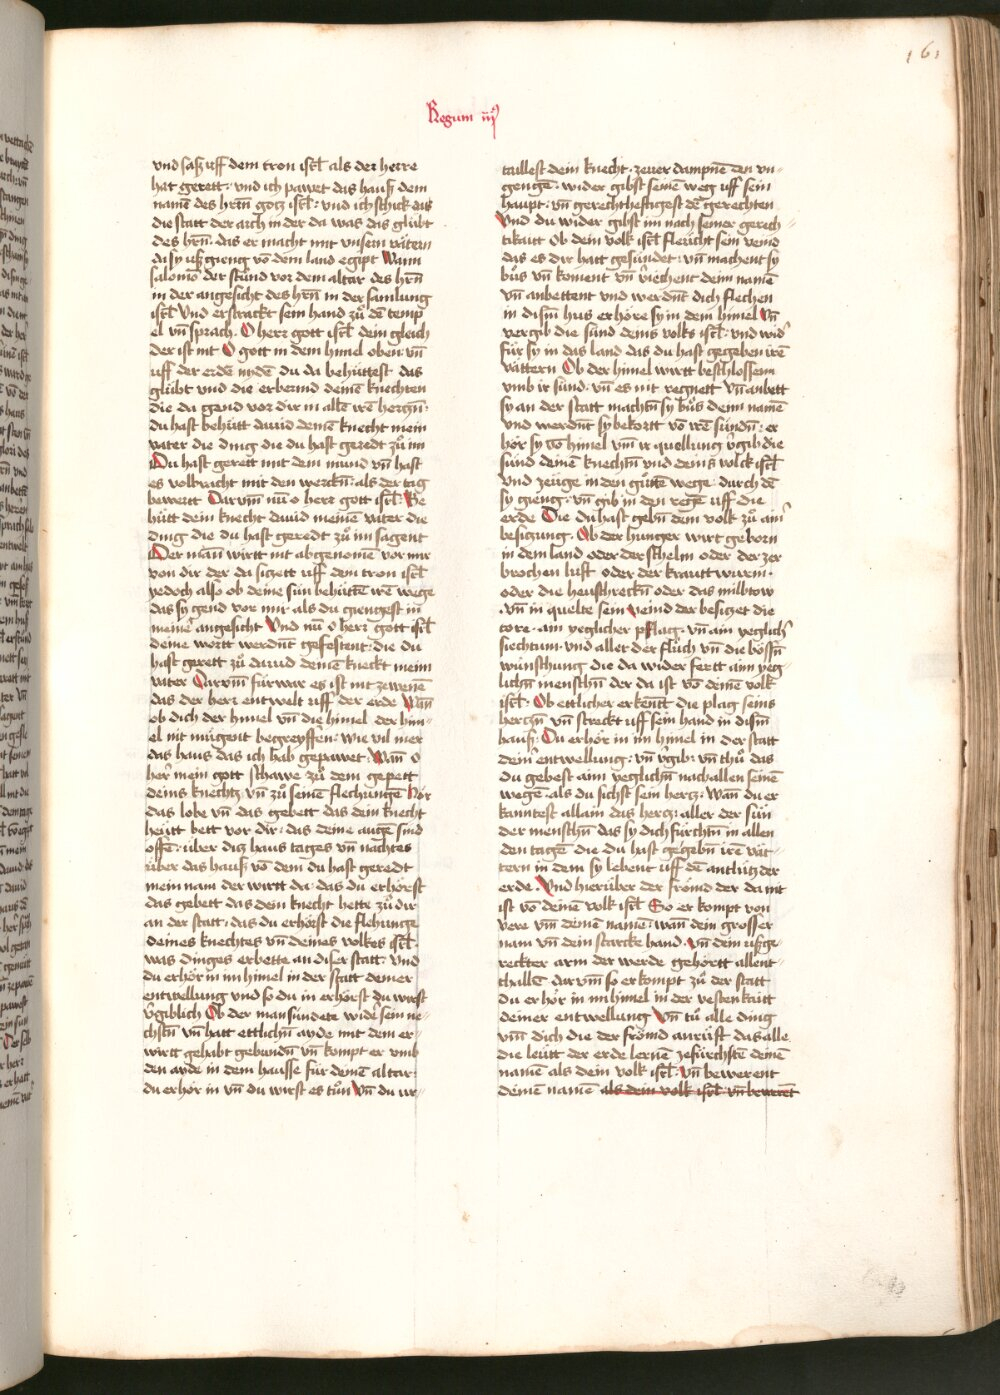 161
Regum iij
vnd saß uff dem tron isrl̄ als der herre
hat gerett · vnd ich pawet das hauß dem
namē des hrn̄ gotz isrl̄ · vnd ich schick aus
die statt der arch in der da was das glübt
des hrn̄ · das er macht mit vnsern vätern
da sy uß gieng vō dem land egipt Wann
salomon der stůnd vor dem altar des hrn̄
in der angesicht des hrn̄ in der samlung
isrl̄ Vnd erstrackt sein hand zů dē temp
el vn̄ sprach · O herz gott isrl̄ dein gleich
der ist nit O gott in dem himel oben · vn̄
uff der erdē nidē Du da behüttest · das
glübt vnd die erbermd deinē knechten
die da gend vor dir in allē irē hertzn̄ ·
du hast behütt dauid deinē knecht mein
vater die ding die du hast geredt zů im
Du hast gerett mit dem mund vn̄ hast
es volbracht mit den werckn̄ · als der tag
bewert Darvm̄ nu̅ o herz gott isrl̄ · Be
hütt dein knecht dauid meinē vater die
ding die du hast geredt zů im sagent
Der man̄ wirtt nit abgenomē vor mir
von dir der da sitzett uff dem tron isrl̄
yedoch also ob deine sün behüttē irē wege
das sy gend vor mir als du giengest in
meinē angesicht Vnd nu̅ o herz gott isrl̄
deine wortt werdnt̄ gefestent · die du
hast gerett zů dauid deinē kneckt meinn
vater Darvm̄ fürwar es ist nit zewenē
das der herz entwelt uff der erde Wan̄
ob dich der himel vn̄ die himel der him-
el nit mügent begreyffen · wie vil mer
das haus das ich hab gepawet · Wan̄ o
her mein gott schawe zů dem gepett
deins knechtz vn̄ zů seinē flechungē hör
das lobe vn̄ das gebett das dein knecht
heütt bett vor dir · das deine augē sind
offē · über ditz haus tages vn̄ nachtes
über das hauß vō dem du hast geredt
mein nam der wirtt da · das du erhörst
das gebett das dein knecht bette zů dir
an der statt · das du erhörst die flehunge
deines knechtes vn̄ deines volkes isrl̄ ·
was dinges erbette an diser statt · Vnd
du erhör in im himel in der statt deiner
entwellung vnd so du in erhörst du wirst
v̄giblich Ob der man sündete widē sein ne-
chstn̄ vn̄ hatt ettlichn̄ ayde mit dem er-
wirtt gehabt gebundn̄ vn̄ kompt er vmb
den ayde in dem hausse für deinē altar ·
du erhör in vn̄ du wirst es tůn Vn̄ du ur-
taillest dein knecht · zeuer dampnē den vn-
gengē · wider gibst seinē weg uff sein
haupt · vn̄ gerechthestigest dē gerechten
Vnd du wider gibst im nach seiner gerech-
tikaitt Ob dein volk isrl̄ flericht sein veind
das es dir hatt gesündet · vn̄ machent sy
bůs vn̄ koment vn̄ v̄iechent deim namē
vn̄ anbettent vnd werdnt̄ dich flechen
in dism̄ hus erhöre sy in dem himel Vn̄
vergib die sünd deins volks isrl̄ · vnd wid
für sy in das land das du hast gegeben irē
vättern Ob der himel wirtt beschlossenn
vmb ir sünd · vn̄ es nit regnett Vn̄ anbett
sy an der statt machtn̄ sy bůs deim namē
vnd werdnt̄ sy bekortt vō irē sündn̄ : er
hör sy vō himel vm̄ ir quellung v̄gib die
sünd deinē knechtn̄ vnd deins volck isrl̄
vnd zeüge in den gůttē wege · durch dē
sy gieng · vn̄ gib in den regē uff die
erde Die du hast gebn̄ dem volk zů aim
besitzung · Ob der hunger wirt geborn
in dem land oder der schelm oder der zer
brochen lust oder der krautt wurem ·
oder die heuschreckn̄ oder das milbtow
· vn̄ in quelte sein veind der besitzet die
tore · am yeglicher pflag · vn̄ ain yeglich
siechtum · vnd aller der flůch vn̄ die bössn̄
wünschung die da wider fertt aim yeg-
lichn̄ menschn̄ der da ist vō deinē volk
isrl̄ · Ob ettlicher erkentt die plag seins
hertzn̄ vn̄ streckt uff sein hand in dism̄
hauß · Du erhör in im himel in der statt
deinr̄ entwellung · vn̄ v̄gib · vn̄ thů das
du gebest aim yeglichn̄ nach allen seinē
wegē · als du sichst sein hertz · Wan̄ du er
kanntest allain das hertz · aller der sün
der menschn̄ das sy dich fürchtn̄ in allen
den tagē die du hast gegebn̄ irē vät-
tern in dem sy lebent uff dē antlütz der
erde · Vnd hierüber der frömd der da nit
ist vō deinē volk isrl̄ So er kompt von
vere vm̄ deinē namē · wan̄ dein grosser
nam vn̄ dein starcke hand · vn̄ dein ußge-
reckter arm der werde gehörtt allent-
challē darvm̄ so er kompt zů der statt
du er hör in im himel in der vesten kaitt
deiner entwellung Vn̄ tů alle ding
vm̄ dich die der frömd anrüft das alle
die leütt der erde lernē zefürchtē deinē
namē als dein volk isrl̄ · vn̄ bewerent
deinē namē als dem volk isrl̄ vn̄ bewerēt